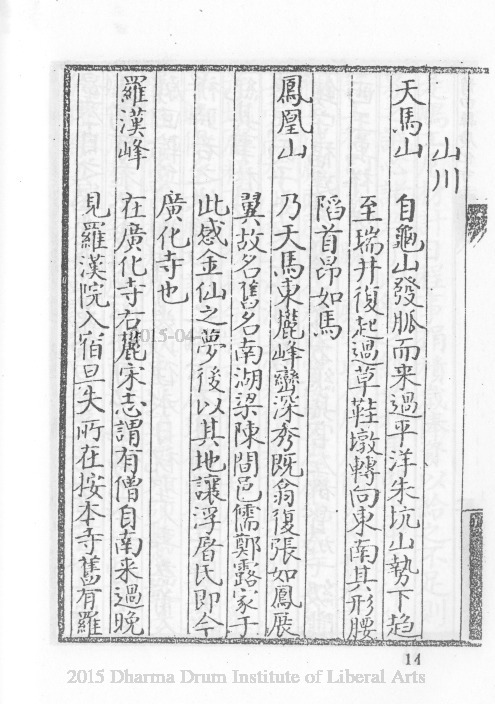 山川
天馬山　自龜山發脈而来過平洋朱坑山勢下趋
至瑞井復起過草鞋墩轉向東南其形腰
陷首昂如馬
鳳凰山　乃天馬東麓峰巒深秀既翕復張如鳳展
翼故名舊名南湖梁陳間邑儒鄭露家于
此感金仙之夢後以其地讓浮屠氏即今
廣化寺也
羅漢峰　在廣化寺右麓宋志謂有僧自南来過晚
見羅漢院入宿旦失所在按本寺舊有羅
14
2015 Dharma Drum Institute of Liberal Arts